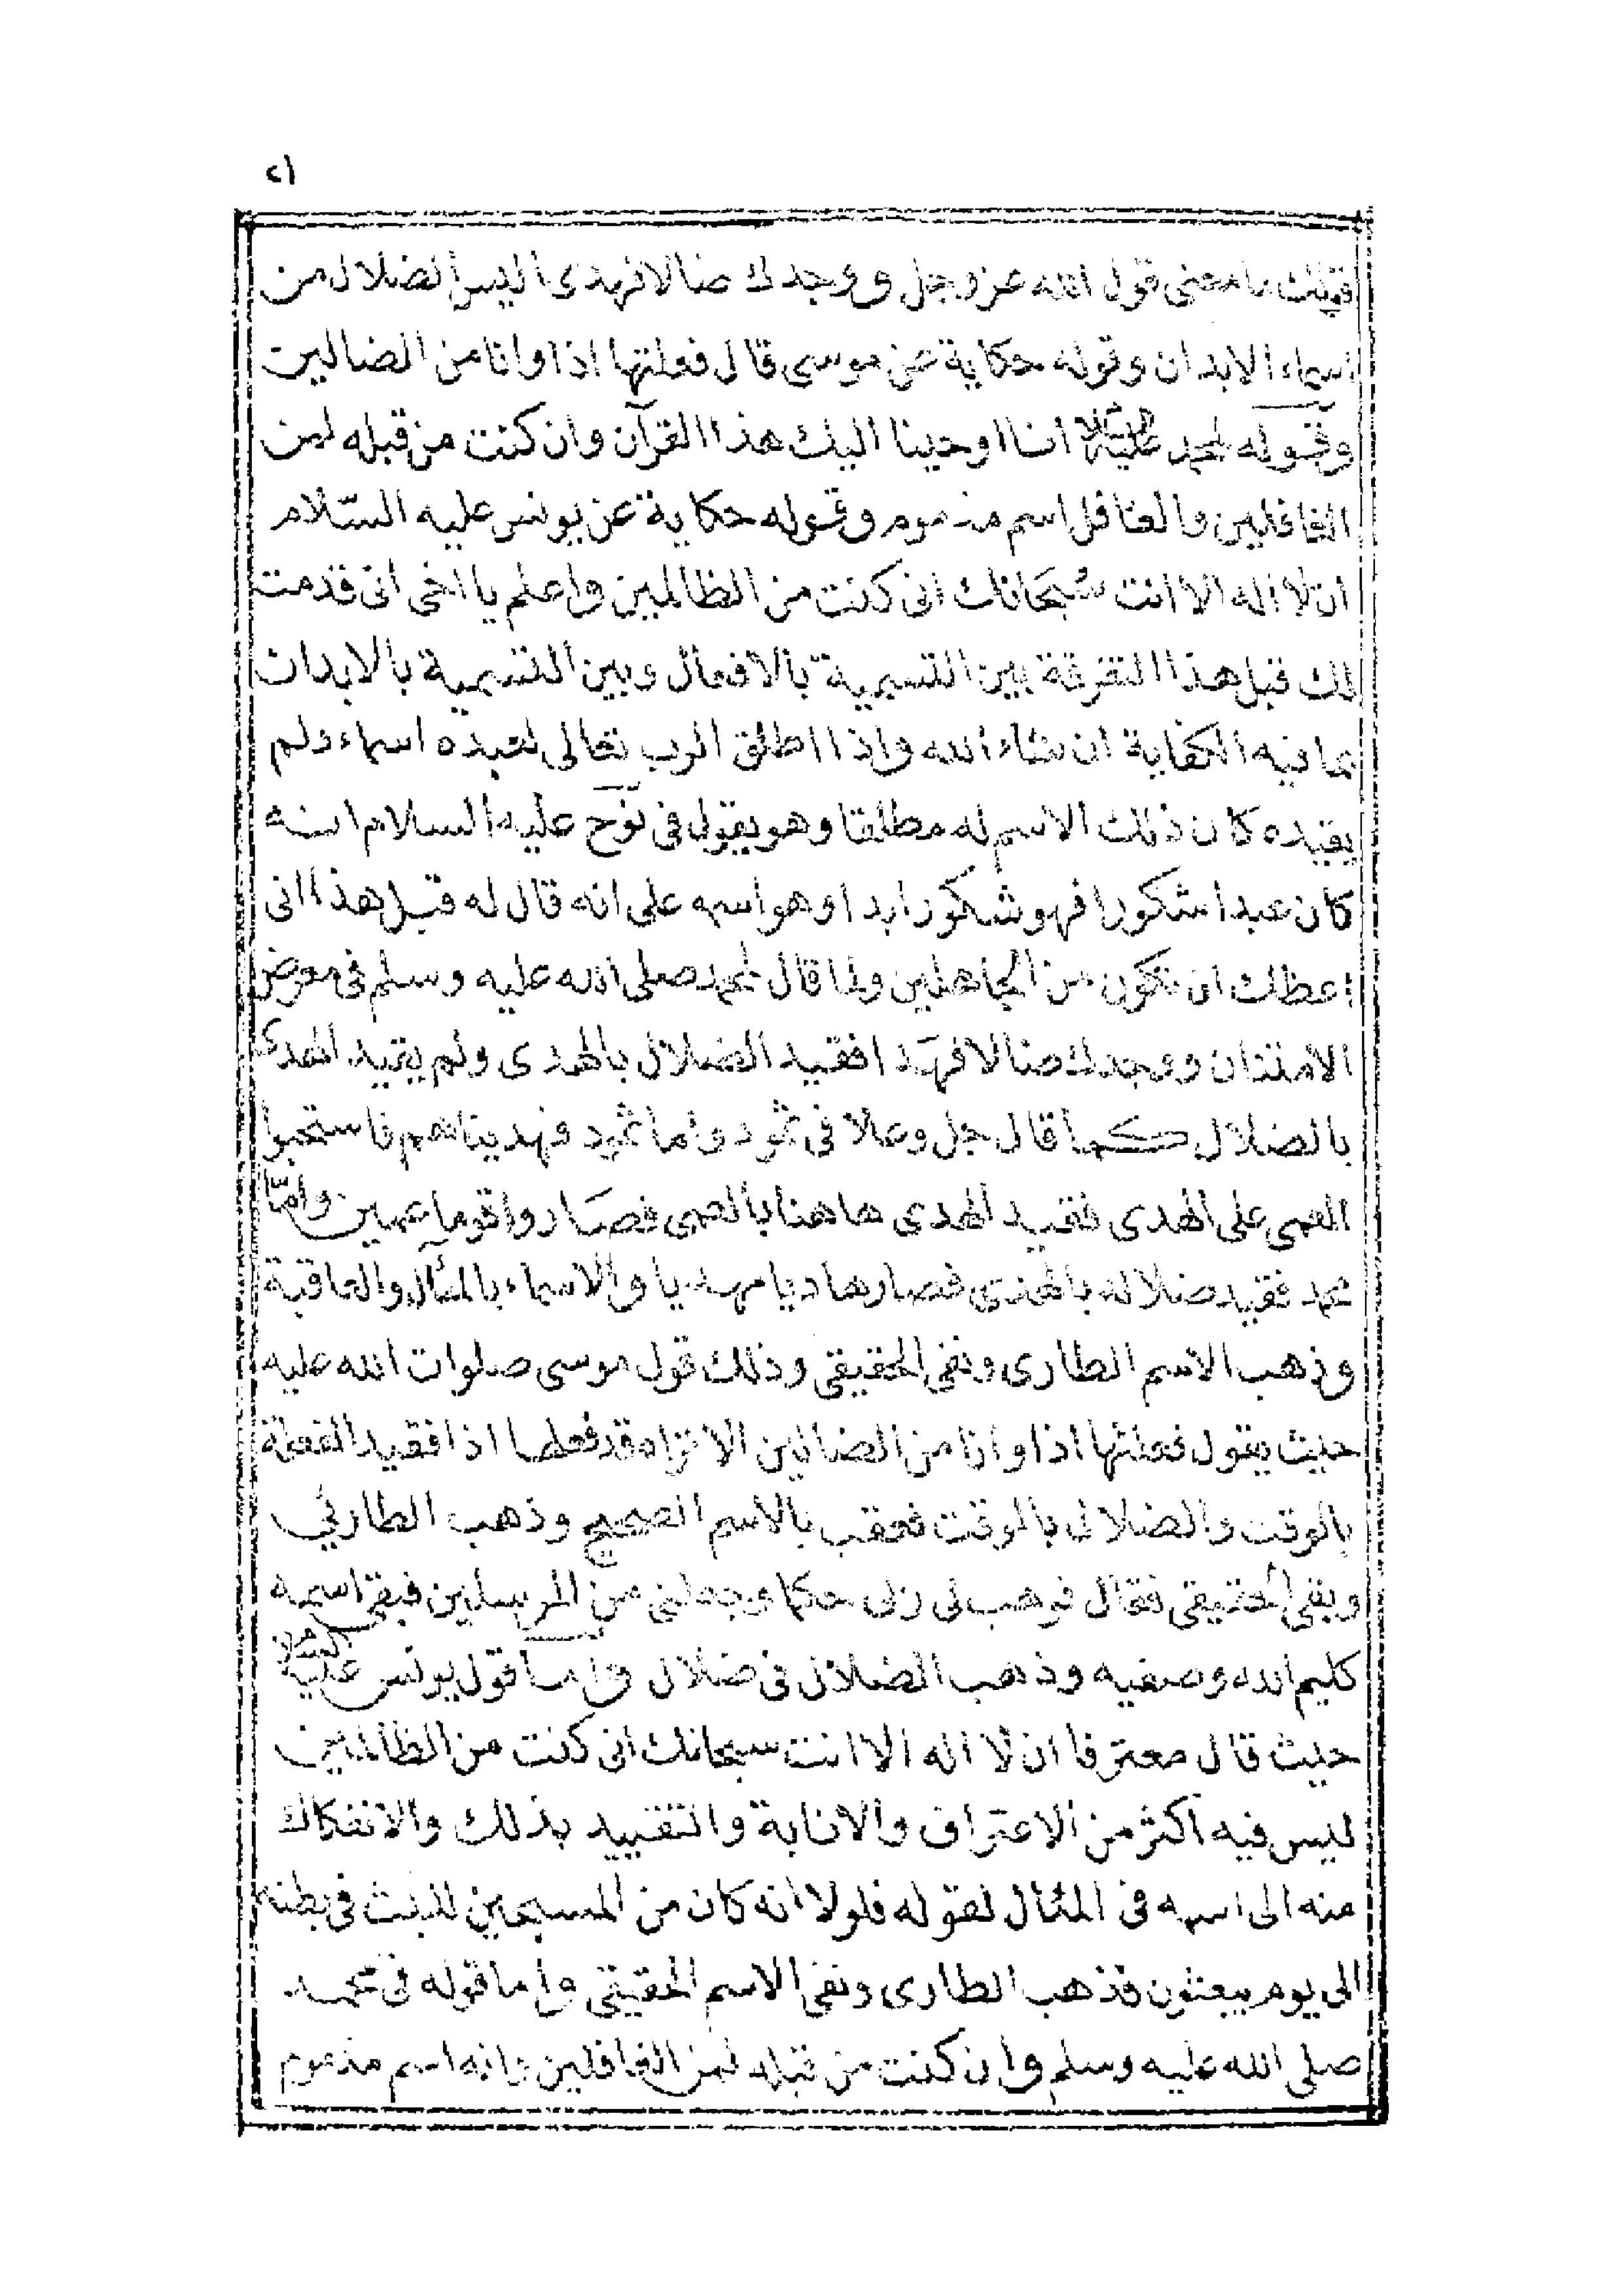 ٢١
قلت ما معنى قول الله عز وجل ووجدك ضالا فهدى اليس الضلال من
اسماء الابدان وقوله حكاية عن موسى قال فعلتها اذا وانا من الضالين
وقوله لمحمد عليه السلام انا اوحينا اليك هذا القرآن وان كنت من قبله لمن
الغافلين والغافل اسم مذموم وقوله حكاية عن يونس عليه السّلام
ان لا اله الا انت سُبحَانك انى كنت من الظالمين واعلم يا اخى انى قدمت
لك قبل هذا التفرقة بين التسمية بالافعال وبين التسمية بالابدان
بما فيه الكفاية ان شاء الله واذا اطلق الرب تعالى لعبده اسماء ولم
يقيده كان ذلك الاسم له مطلقا وهو يقول فى نوح عليه السلام انه
كان عبدا شكورا فهو شكور ابدا وهو اسمه على انه قال له قبل هذا انى
اعظك ان تكون من الجاهلين ولما قال لمحمد صلى الله عليه وسلم فى معرض
الامتنان ووجدك ضالا فهدى فقيد الضلال بالهدى ولم يقيد الهدى
بالضلال كما قال جل وعلا فى ثمود واما ثمود فهديناهم فاستحبوا
العمى على الهدى فقيد الهدى هاهنا بالعمى فصَاروا قوما عمين وامّا
محمد فقيد ضلاله بالهدى فصار هاديا مهديا والاسماء بالمثآل والعاقبة
وذهب الاسم الطارى وبقى الحقيقى وذلك قول موسى صلوات الله عليه
حيث يقول فعلتها اذا وانا من الضالين الا تراه قد فعلها اذا فقيد الفعلة
بالوقت والضلال بالوقت فعقب بالاسم الصحيح وذهب الطارئي
وبقى الحقيقى فقال فوهب لى ربى حكما وجعلنى من المرسلين فبقى اسمه
كليم الله وصفيه وذهب الضلال فى ضلال واما قول يونس عليه السلام
حيث قال معترفا ان لا اله الا انت سبحانك انى كنت من الظالمين
ليس فيه اكثر من الاعتراف والانابة والتقييد بذلك والانفكاك
منه الى اسمه فى المثال لقوله فلولا انه كان من المسبحين للبث فى بطنه
الى يوم يبعثون فذهب الطارى وبقى الاسم الحقيقى واما قوله فى محمد
صلى الله عليه وسلم وان كنت من قبله لمن الغافلين وانه اسم مذموم